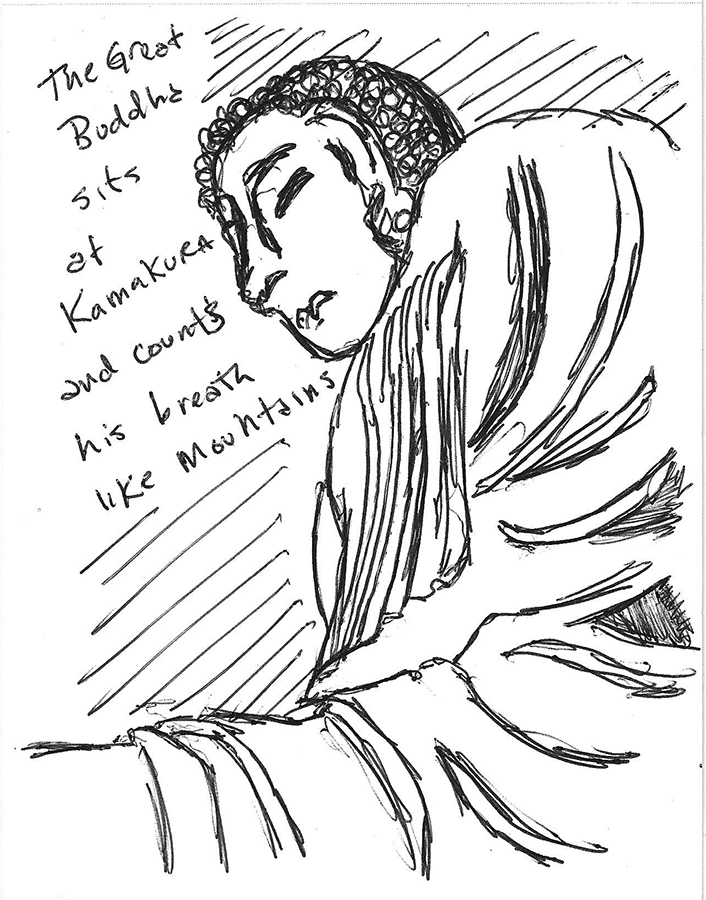 The Great
Buddha
sits
at
Kamakura
and counts
his breath
like mountains